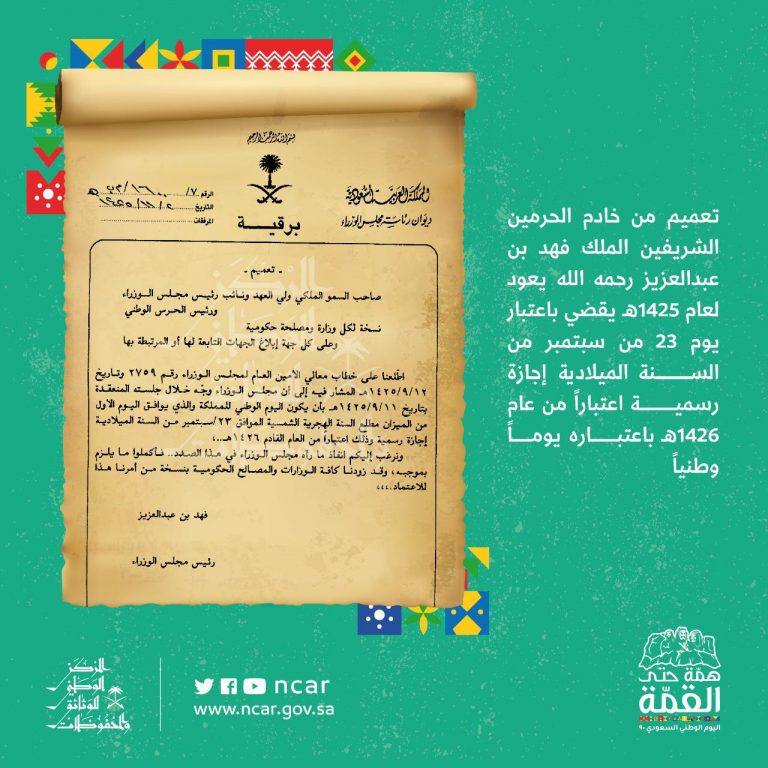 بسم الله الرحمن الرحيم
المملكة العربية السعودية
ديوان رئاسة مجلس الوزراء
برقية
الرقم
التاريخ
المرفقات
- تعميم -
صاحب السمو الملكي ولي العهد ونائب رئيس مجلس الوزراء
ورئيس الحرس الوطني
نسخة لكل وزارة ومصلحة حكومية
وعلى كل جهة إبلاغ الجهات التابعة لها أو المرتبطة بها
اطلعنا على خطاب معالي الأمين العام لمجلس الوزراء رقم ٢٧٥٩ وتاريخ
١٤٢٥/٩/١٢هـ المشار فيه إلى أن مجلس الوزراء وجّه خلال جلسته المنعقدة
بتاريخ ١٤٢٥/٩/١١هـ بأن يكون اليوم الوطني للمملكة والذي يوافق اليوم الأول
من الميزان مطلع السنة الهجرية الشمسية الموافق ٢٣/سبتمبر من السنة الميلادية
إجازة رسمية وذلك اعتباراً من العام القادم ١٤٢٦هـ،،،
ونرغب إليكم انفاذ ما رآه مجلس الوزراء في هذا الصدد.. فأكملوا ما يلزم
بموجبه، وقد زودنا كافة الوزارات والمصالح الحكومية بنسخة من أمرنا هذا
للاعتماد،،،
فهد بن عبدالعزيز
رئيس مجلس الوزراء
تعميم من خادم الحرمين
الشريفين الملك فهد بن
عبدالعزيز رحمه الله يعود
لعام 1425هـ يقضي باعتبار
يوم 23 من سبتمبر من
السنة الميلادية إجازة
رسمية اعتباراً من عام
1426هـ باعتباره يوماً
وطنياً
المركز
الوطني
للوثائق
والمحفوظات
ncar
www.ncar.gov.sa
همّة حتى
القمّة
اليوم الوطني السعودي ٩٠